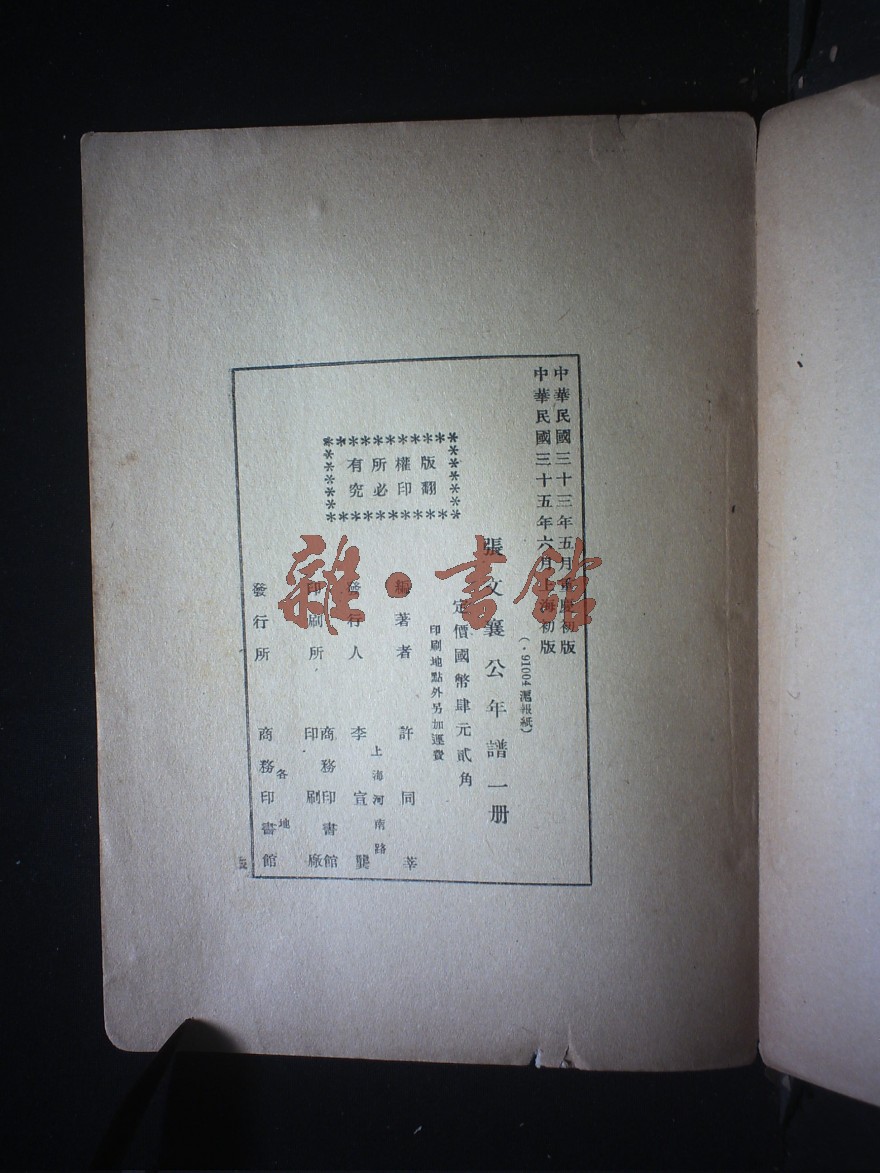 中華民國三十三年五月重慶初版
中華民國三十五年六月上海初版
(·91004滬報紙)
張文襄公年譜一册
定價國幣肆元貳角
印刷地點外另加運費
版權所有
翻印必究
編著者 許同莘
上海河南路
發行人 李宣龔
印刷所 商務印書館
印刷廠
發行所 各地
商務印書館
雜·書館